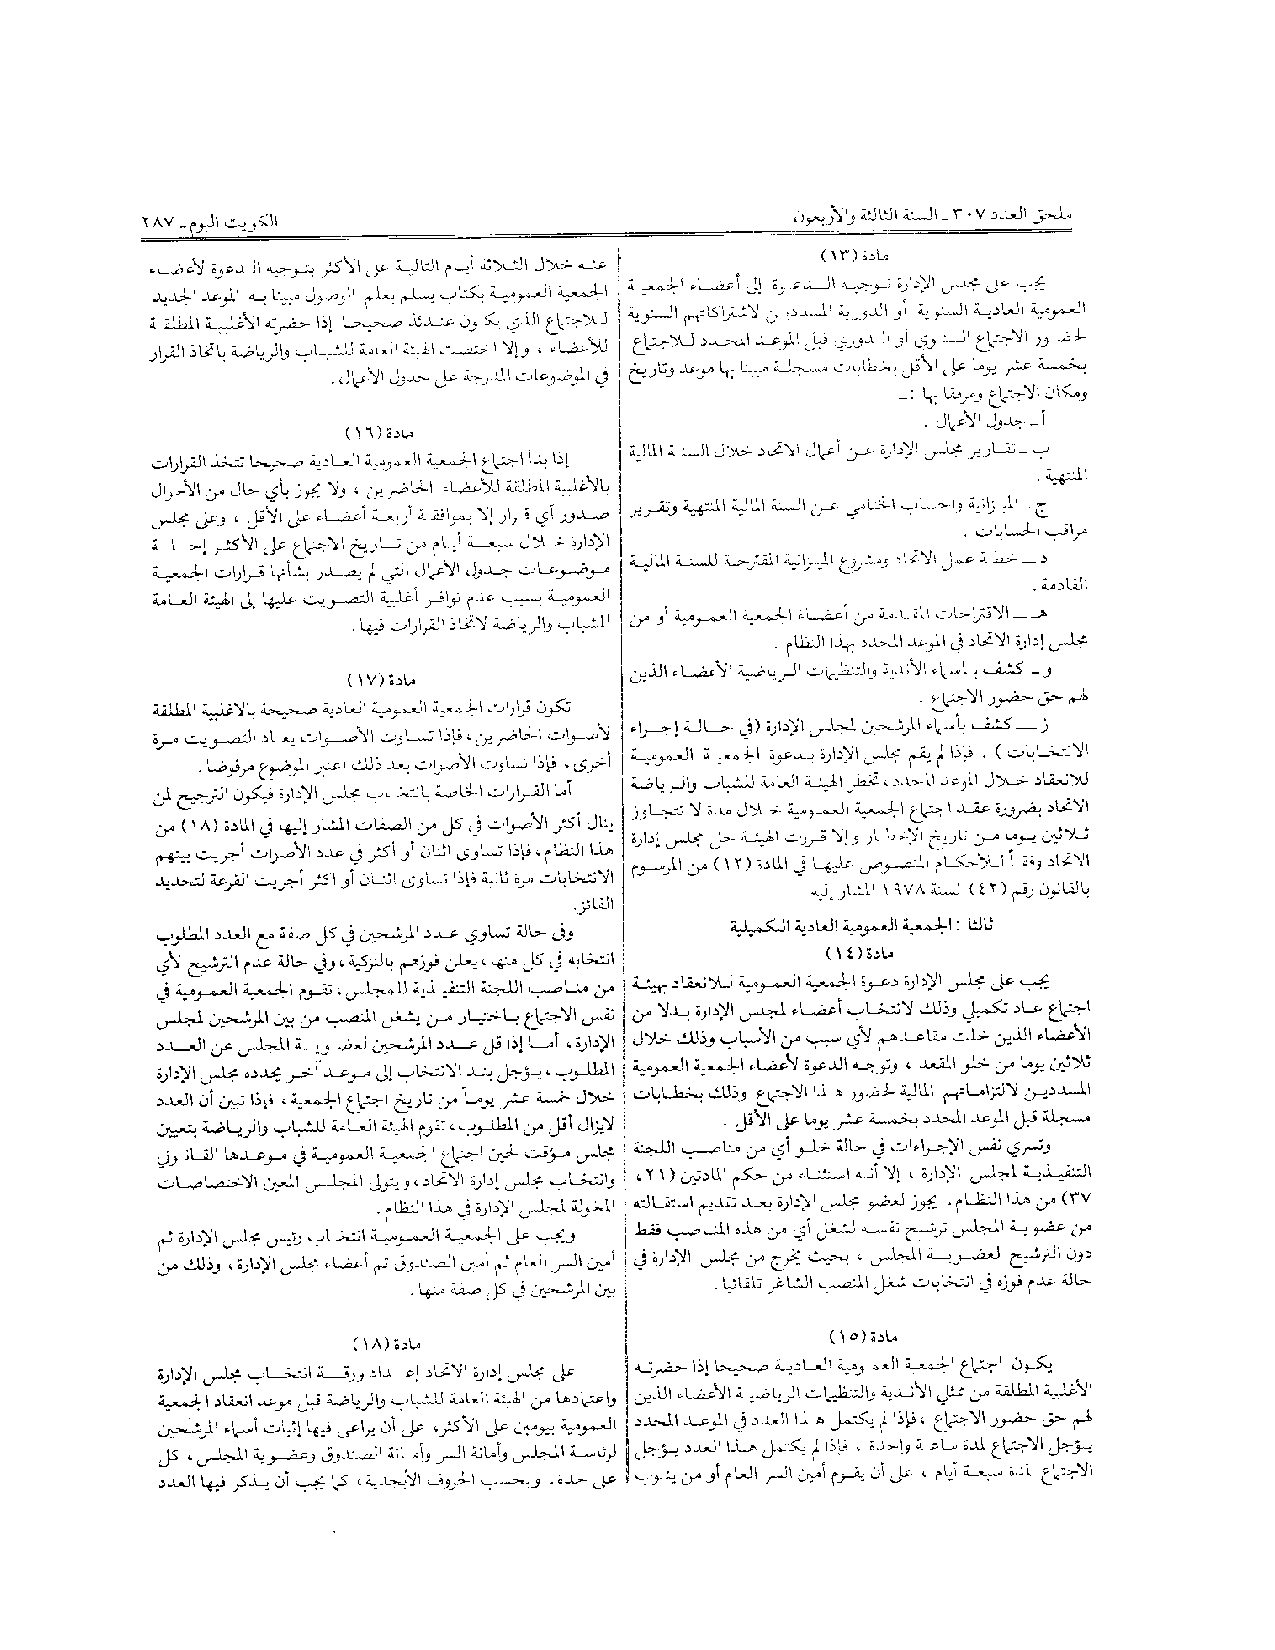 ملحق العدد ٣٠٧ ـ السنة الثالثة والأربعون
الكويت اليوم ـ ٢٨٧
مادة (١٣)
يجب على مجلس الإدارة توجيه الدعوة إلى أعضاء الجمعية
العمومية العادية السنوية أو الدورية المسددين لاشتراكاتهم السنوية
لحضور الاجتماع السنوي أو الدوري قبل الموعد المحدد للاجتماع
بخمسة عشر يوما على الأقل بخطابات مسجلة مبينا بها موعد وتاريخ
ومكان الاجتماع ومرفقا بها : ـ
أ ـ جدول الأعمال .
ب ـ تقارير مجلس الإدارة عن أعمال الاتحاد خلال السنة المالية
المنتهية .
ج ـ الميزانية والحساب الختامي عن السنة المالية المنتهية وتقرير
مراقب الحسابات .
د ـ خطة عمل الاتحاد ومشروع الميزانية المقترحة للسنة المالية
القادمة .
هـ ـ الاقتراحات المقدمة من أعضاء الجمعية العمومية أو من
مجلس إدارة الاتحاد في الموعد المحدد بهذا النظام .
و ـ كشف بأسماء الأندية والتنظيمات الرياضية الأعضاء الذين
لهم حق حضور الاجتماع .
ز ـ كشف بأسماء المرشحين لمجلس الإدارة (في حالة إجراء
الانتخابات ) . فإذا لم يقم مجلس الإدارة بدعوة الجمعية العمومية
للانعقاد خلال الموعد المحدد ، تخطر الهيئة العامة للشباب والرياضة
الاتحاد بضرورة عقد اجتماع الجمعية العمومية خلال مدة لا تتجاوز
ثلاثين يوما من تاريخ الإخطار وإلا قررت الهيئة حل مجلس إدارة
الاتحاد وفقا للأحكام المنصوص عليها في المادة (١٢) من المرسوم
بالقانون رقم (٤٢) لسنة ١٩٧٨ المشار إليه
ثالثا : الجمعية العمومية العادية التكميلية
مادة (١٤)
يجب على مجلس الإدارة دعوة الجمعية العمومية للانعقاد بهيئة
اجتماع عاد تكميلي وذلك لانتخاب أعضاء لمجلس الإدارة بدلا من
الأعضاء الذين خلت مقاعدهم لأي سبب من الأسباب وذلك خلال
ثلاثين يوما من خلو المقعد ، وتوجه الدعوة لأعضاء الجمعية العمومية
المسددين لالتزاماتهم المالية لحضور هذا الاجتماع وذلك بخطابات
مسجلة قبل الموعد المحدد بخمسة عشر يوما على الأقل .
وتسري نفس الإجراءات في حالة خلو أي من مناصب اللجنة
التنفيذية لمجلس الإدارة ، إلا أنه استثناء من حكم المادتين (٢١ ،
٣٧) من هذا النظام . يجوز لعضو مجلس الإدارة بعد تقديم استقالته
من عضوية المجلس ترشيح نفسه لشغل أي من هذه المناصب فقط
دون الترشيح لعضوية المجلس ، بحيث يخرج من مجلس الإدارة في
حالة عدم فوزه في انتخابات شغل المنصب الشاغر تلقائيا .
مادة (١٥)
يكون اجتماع الجمعية العمومية العادية صحيحا إذا حضرته
الأغلبية المطلقة من ممثلي الأندية والتنظيمات الرياضية الأعضاء الذين
لهم حق حضور الاجتماع ، فإذا لم يكتمل هذا العدد في الموعد المحدد
يؤجل الاجتماع لمدة ساعة واحدة ، فإذا لم يكتمل هذا العدد يؤجل
الاجتماع لمدة سبعة أيام ، على أن يقوم أمين السر العام أو من ينوب
عنه خلال الثلاثة أيام التالية على الأكثر بتوجيه الدعوة لأعضاء
الجمعية العمومية بكتاب يسلم بعلم الوصول مبينا به الموعد الجديد
للاجتماع الذي يكون عندئذ صحيحا إذا حضرته الأغلبية المطلقة
للأعضاء ، وإلا اختصت الهيئة العامة للشباب والرياضة باتخاذ القرار
في الموضوعات المدرجة على جدول الأعمال .
مادة (١٦)
إذا بدأ اجتماع الجمعية العمومية العادية صحيحا تتخذ القرارات
بالأغلبية المطلقة للأعضاء الحاضرين ، ولا يجوز بأي حال من الأحوال
صدور أي قرار إلا بموافقة أربعة أعضاء على الأقل ، وعلى مجلس
الإدارة خلال سبعة أيام من تاريخ الاجتماع على الأكثر إحالة
موضوعات جدول الأعمال التي لم يصدر بشأنها قرارات الجمعية
العمومية بسبب عدم توافر أغلبية التصويت عليها إلى الهيئة العامة
للشباب والرياضة لاتخاذ القرارات فيها .
مادة (١٧)
تكون قرارات الجمعية العمومية العادية صحيحة بالأغلبية المطلقة
لأصوات الحاضرين ، فإذا تساوت الأصوات يعاد التصويت مرة
أخرى ، فإذا تساوت الأصوات بعد ذلك اعتبر الموضوع مرفوضا .
أما القرارات الخاصة بانتخاب مجلس الإدارة فيكون الترجيح لمن
ينال أكثر الأصوات في كل من الصفات المشار إليها في المادة (١٨) من
هذا النظام ، فإذا تساوى اثنان أو أكثر في عدد الأصوات أجريت بينهم
الانتخابات مرة ثانية فإذا تساوى اثنان أو أكثر أجريت القرعة لتحديد
الفائز .
وفي حالة تساوي عدد المرشحين في كل صفة مع العدد المطلوب
انتخابه في كل منها ، يعلن فوزهم بالتزكية ، وفي حالة عدم الترشيح لأي
من مناصب اللجنة التنفيذية للمجلس ، تقوم الجمعية العمومية في
نفس الاجتماع باختيار من يشغل المنصب من بين المرشحين لمجلس
الإدارة ، أما إذا قل عدد المرشحين لعضوية المجلس عن العدد
المطلوب ، يؤجل بند الانتخاب إلى موعد آخر يحدده مجلس الإدارة
خلال خمسة عشر يوما من تاريخ اجتماع الجمعية ، فإذا تبين أن العدد
لايزال أقل من المطلوب ، تقوم الهيئة العامة للشباب والرياضة بتعيين
مجلس مؤقت لحين اجتماع الجمعية العمومية في موعدها القانوني
وانتخاب مجلس إدارة الاتحاد ، ويتولى المجلس المعين الاختصاصات
المخولة لمجلس الإدارة في هذا النظام .
ويجب على الجمعية العمومية انتخاب رئيس مجلس الإدارة ثم
أمين السر العام ثم أمين الصندوق ثم أعضاء مجلس الإدارة ، وذلك من
بين المرشحين في كل صفة منها .
مادة (١٨)
على مجلس إدارة الاتحاد إعداد ورقة انتخاب مجلس الإدارة
واعتمادها من الهيئة العامة للشباب والرياضة قبل موعد انعقاد الجمعية
العمومية بيومين على الأكثر ، على أن يراعى فيها إثبات أسماء المرشحين
لرئاسة المجلس وأمانة السر وأمانة الصندوق وعضوية المجلس ، كل
على حدة . وبحسب الحروف الأبجدية ، كما يجب أن يذكر فيها العدد